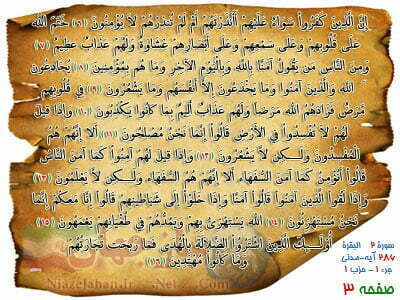 إِنَّ الَّذِينَ كَفَرُوا سَوَاءٌ عَلَيْهِمْ أَأَنْذَرْتَهُمْ أَمْ لَمْ تُنْذِرْهُمْ لَا يُؤْمِنُونَ ﴿٦﴾ خَتَمَ اللَّهُ
عَلَى قُلُوبِهِمْ وَعَلَى سَمْعِهِمْ وَعَلَى أَبْصَارِهِمْ غِشَاوَةٌ وَلَهُمْ عَذَابٌ عَظِيمٌ ﴿٧﴾
وَمِنَ النَّاسِ مَنْ يَقُولُ آمَنَّا بِاللَّهِ وَبِالْيَوْمِ الْآخِرِ وَمَا هُمْ بِمُؤْمِنِينَ ﴿٨﴾ يُخَادِعُونَ
اللَّهَ وَالَّذِينَ آمَنُوا وَمَا يَخْدَعُونَ إِلَّا أَنْفُسَهُمْ وَمَا يَشْعُرُونَ ﴿٩﴾ فِي قُلُوبِهِمْ
مَرَضٌ فَزَادَهُمُ اللَّهُ مَرَضًا وَلَهُمْ عَذَابٌ أَلِيمٌ بِمَا كَانُوا يَكْذِبُونَ ﴿١٠﴾ وَإِذَا قِيلَ
لَهُمْ لَا تُفْسِدُوا فِي الْأَرْضِ قَالُوا إِنَّمَا نَحْنُ مُصْلِحُونَ ﴿١١﴾ أَلَا إِنَّهُمْ هُمُ
الْمُفْسِدُونَ وَلَٰكِنْ لَا يَشْعُرُونَ ﴿١٢﴾ وَإِذَا قِيلَ لَهُمْ آمِنُوا كَمَا آمَنَ النَّاسُ
قَالُوا أَنُؤْمِنُ كَمَا آمَنَ السُّفَهَاءُ أَلَا إِنَّهُمْ هُمُ السُّفَهَاءُ وَلَٰكِنْ لَا يَعْلَمُونَ ﴿١٣﴾
وَإِذَا لَقُوا الَّذِينَ آمَنُوا قَالُوا آمَنَّا وَإِذَا خَلَوْا إِلَى شَيَاطِينِهِمْ قَالُوا إِنَّا مَعَكُمْ إِنَّمَا
نَحْنُ مُسْتَهْزِئُونَ ﴿١٤﴾ اللَّهُ يَسْتَهْزِئُ بِهِمْ وَيَمُدُّهُمْ فِي طُغْيَانِهِمْ يَعْمَهُونَ ﴿١٥﴾
أُولَٰئِكَ الَّذِينَ اشْتَرَوُا الضَّلَالَةَ بِالْهُدَى فَمَا رَبِحَتْ تِجَارَتُهُمْ
وَمَا كَانُوا مُهْتَدِينَ ﴿١٦﴾
سورة ۲ البقرة
۲۸۶ آیه-مدنی
جزء ۱ - حزب ۱
صفحه ۳
Niazelahan.ir